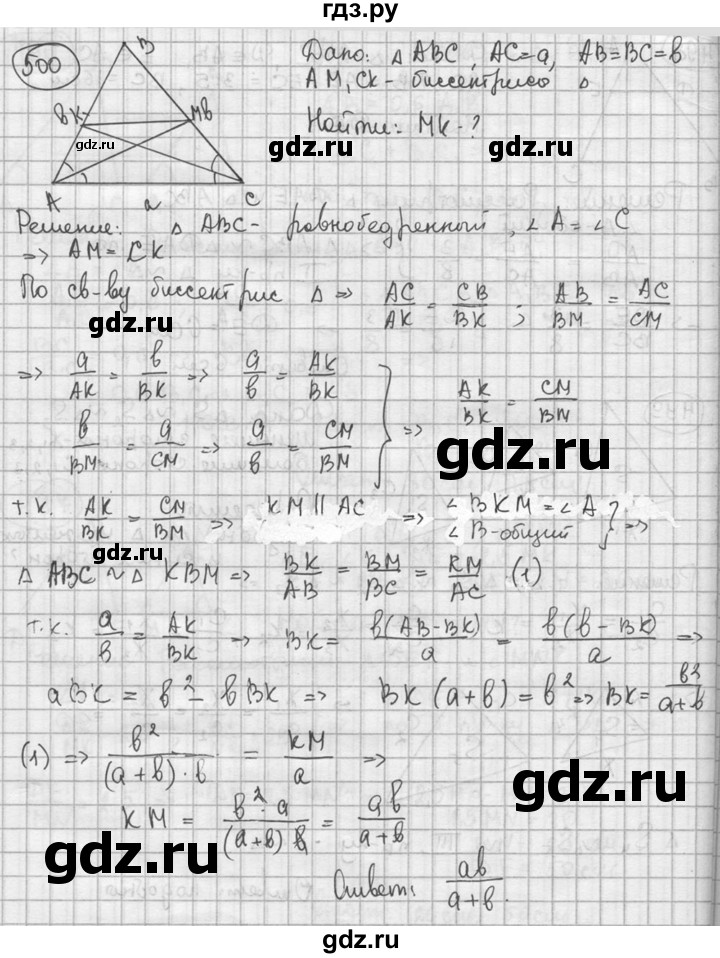 гдз.ру
500
B
BK
MB
A
a
C
Дано: △ ABC, AC=a, AB=BC=в
AM, CK - биссектриса △
Найти: MK-?
gdz.ru
gdz.ru
Решение: △ ABC - равнобедренный, ∠A=∠C
=> AM = CK
По св-ву биссектрис △ => AC/AK = CB/BK ; AB/BM = AC/CM
gdz.ru
=> a/AK = в/BK => a/в = AK/BK
в/BM = a/CM => a/в = CM/BM } => AK/BK = CM/BM
gdz.ru
т.к. AK/BK = CM/BM => KM || AC => ∠BKM = ∠A
∠B-общий } =>
gdz.ru
△ ABC ~ △ KBM => BK/AB = BM/BC = KM/AC (1)
т.к. a/в = AK/BK => BK = в(AB-BK)/a = в(в-BK)/a =>
gdz.ru
aBK = в² - вBK => BK(a+в) = в² => BK = в²/a+в
(1) => в²/(a+в)·в = KM/a =>
gdz.ru
KM = в²·a/(a+в)в = aв/a+в
gdz.ru
Ответ: aв/a+в.
gdz.ru
gdz.ru